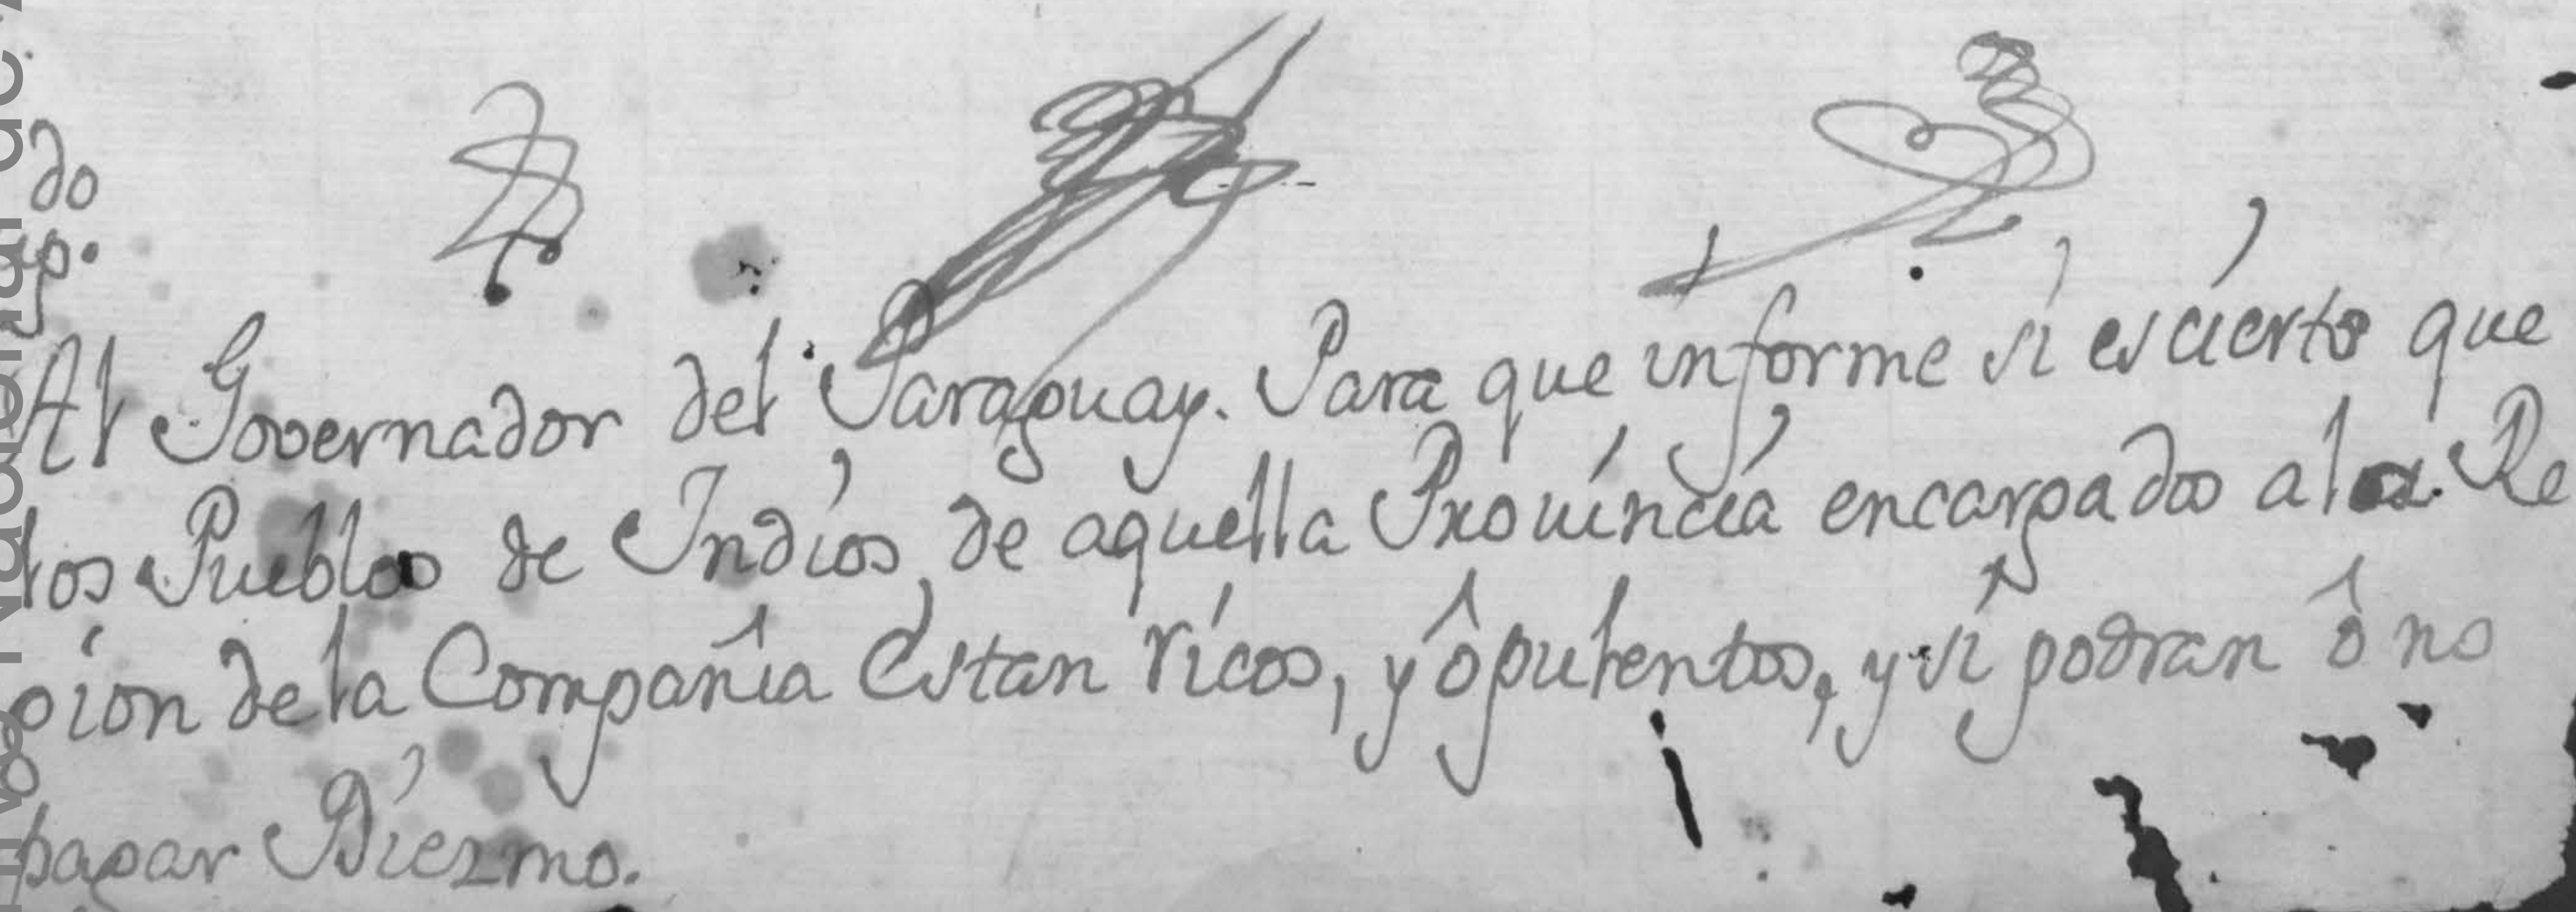 do
Al Governador del Paraguay. Para que informe si es cierto que
los Pueblos de Indios de aquella Prouincia encargados a la Re
gion de la Compañia Estan ricos, y ôpulentos, y si podran ô no
pagar Diezmo.